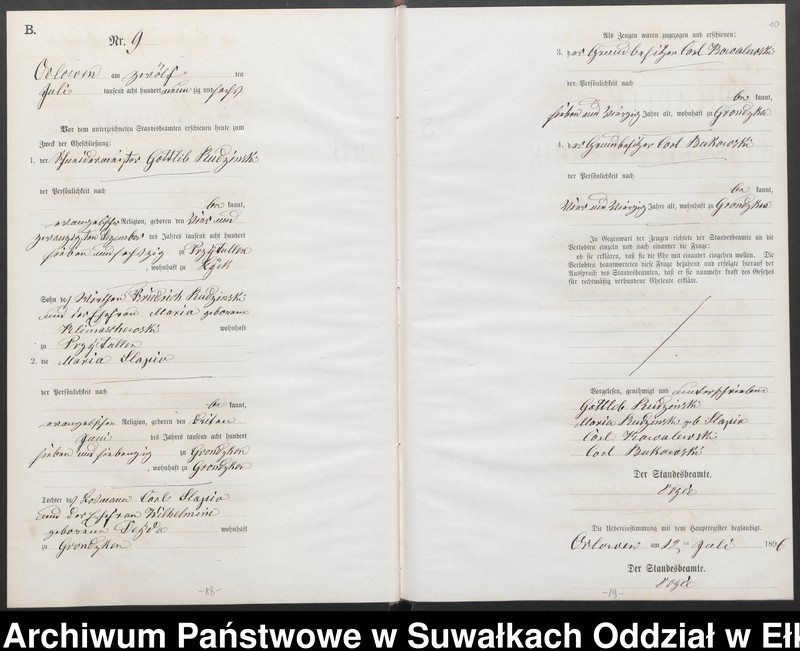 B.
Nr. 9
Orlowen am zwölf ten
Juli tausend acht hundert neun zig und sechs
Vor dem unterzeichneten Standesbeamten erschienen heute zum
Zweck der Eheschließung:
1. der Schneidermeister Gottlieb Rudzinski
der Persönlichkeit nach
be kannt,
evangelischer Religion, geboren den Vier und
zwanzigsten des Jahres tausend acht hundert
sieben und sechszig zu Przytullen
, wohnhaft zu Lyck
Sohn des Wirthen Friedrich Rudzinski
und der Ehefrau Maria geborene
Klimaschewski wohnhaft
zu Przytullen
2. die Maria Slapio
der Persönlichkeit nach
be kannt,
evangelischen Religion, geboren den Dritten
Juni des Jahres tausend acht hundert
sieben und siebenzig zu Grondzken
, wohnhaft zu Grondzken
Tochter des Losmann Carl Slapio
und der Ehefrau Wilhelmine
geborene wohnhaft
zu Grondzken
-18-
10
Als Zeugen waren zugezogen und erschienen:
3. der Grundbesitzer Carl Kowalewski
der Persönlichkeit nach
be kannt,
sieben und vierzig Jahre alt, wohnhaft zu Grondzken
4. der Grundbesitzer Carl Bukowski
der Persönlichkeit nach
be kannt,
vier und vierzig Jahre alt, wohnhaft zu Grondzken
In Gegenwart der Zeugen richtete der Standesbeamte an die
Verlobten einzeln und nach einander die Frage:
ob sie erklären, daß sie die Ehe mit einander eingehen wollen. Die
Verlobten beantworteten diese Frage bejahend und erfolgte hierauf der
Ausspruch des Standesbeamten, daß er sie nunmehr kraft des Gesetzes
für rechtmäßig verbundene Eheleute erkläre.
Vorgelesen, genehmigt und unterschrieben
Gottlieb Rudzinski
Maria Rudzinski geb Slapio
Carl Kowalewski
Carl Bukowski
Der Standesbeamte.
Die Uebereinstimmung mit dem Hauptregister beglaubigt.
Orlowen am 12ten Juli 1896
Der Standesbeamte.
-19-
Archiwum Państwowe w Suwałkach Oddział w Eł